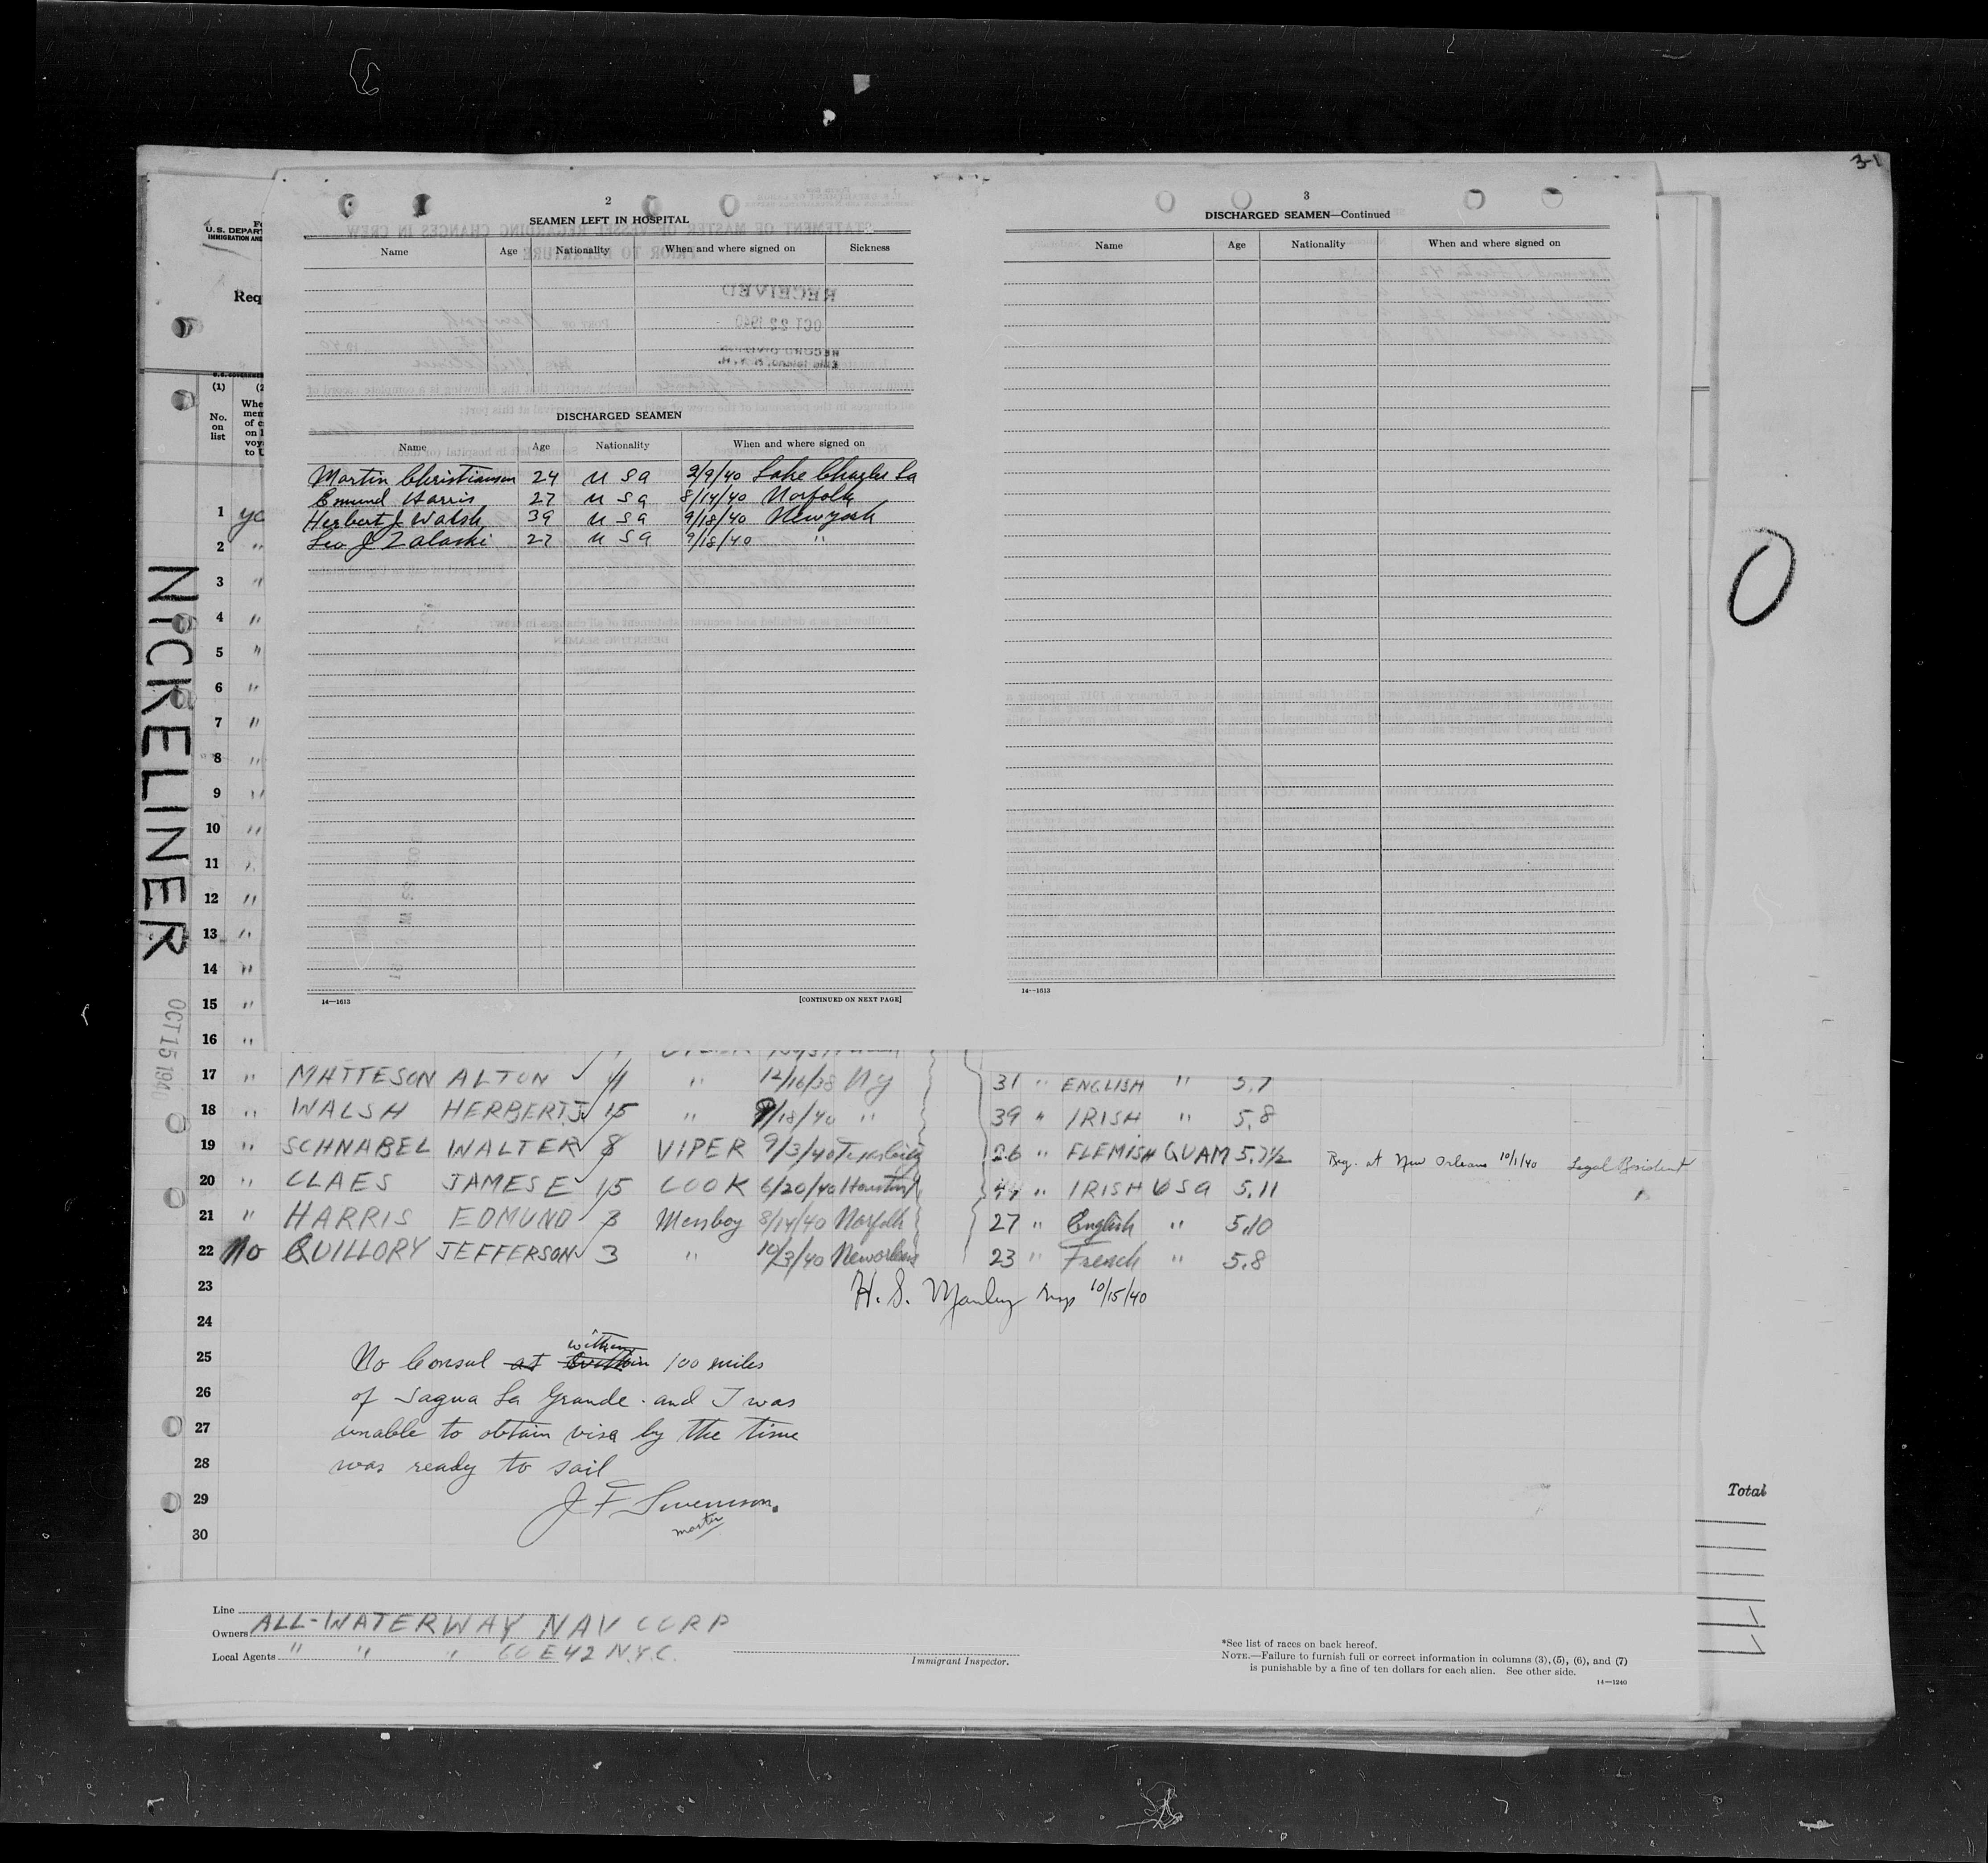 3-1
2
SEAMEN LEFT IN HOSPITAL
Name Age Nationality When and where signed on Sickness
RECEIVED
OCT 22 1940
RECORD DIVISION
Ellis Island, N. Y. H.
DISCHARGED SEAMEN
Name Age Nationality When and where signed on
Martin Christiansen 24 U S A 9/9/40 Lake Charles La
Emund Harris 27 U S A 8/14/40 Norfolk
Herbert J Walsh 39 U S A 9/18/40 New york
Leo J Zalaski 27 U S A 9/18/40 "
14—1613 [CONTINUED ON NEXT PAGE]
3
DISCHARGED SEAMEN—Continued
Name Age Nationality When and where signed on
14—1613
U.S. DEPAR
IMMIGRATION AND
Req
(1)
No.
on
list
Whe
mem
of c
on l
voy
to U
NICKELINER
OCT 15 1940
1
2 "
3 "
4 "
5 "
6 "
7 "
8 "
9 "
10 "
11 "
12 "
13 "
14 "
15 "
16 "
17 " MATTESON ALTON 11 " 12/16/38 NY 31 " ENGLISH " 5.7
18 " WALSH HERBERT J 15 " 9/18/40 " 39 " IRISH " 5.8
19 " SCHNABEL WALTER 8 VIPER 9/3/40 Texas City 26 " FLEMISH GUAM 5.7½ Reg. at New Orleans 10/1/40 Legal Resident
20 " CLAES JAMES E 15 COOK 6/20/40 Houston " IRISH USA 5.11
21 " HARRIS EDMUND 3 Messboy 8/14/40 Norfolk 27 " English " 5.10
22 No QUILLORY JEFFERSON 3 " 10/3/40 New orleans 23 " French " 5.8
23 H. S. Manley Insp 10/15/40
24
25 No Consul at within 100 miles
26 of Sagua La Grande. and I was
27 unable to obtain visa by the time
28 was ready to sail
29 J F Swenson.
master
30
0
Total
Line
Owners ALL-WATERWAY NAV CORP
Local Agents " " " 60 E 42 N.Y.C.
Immigrant Inspector.
*See list of races on back hereof.
NOTE.—Failure to furnish full or correct information in columns (3), (5), (6), and (7)
is punishable by a fine of ten dollars for each alien. See other side.
14—1240